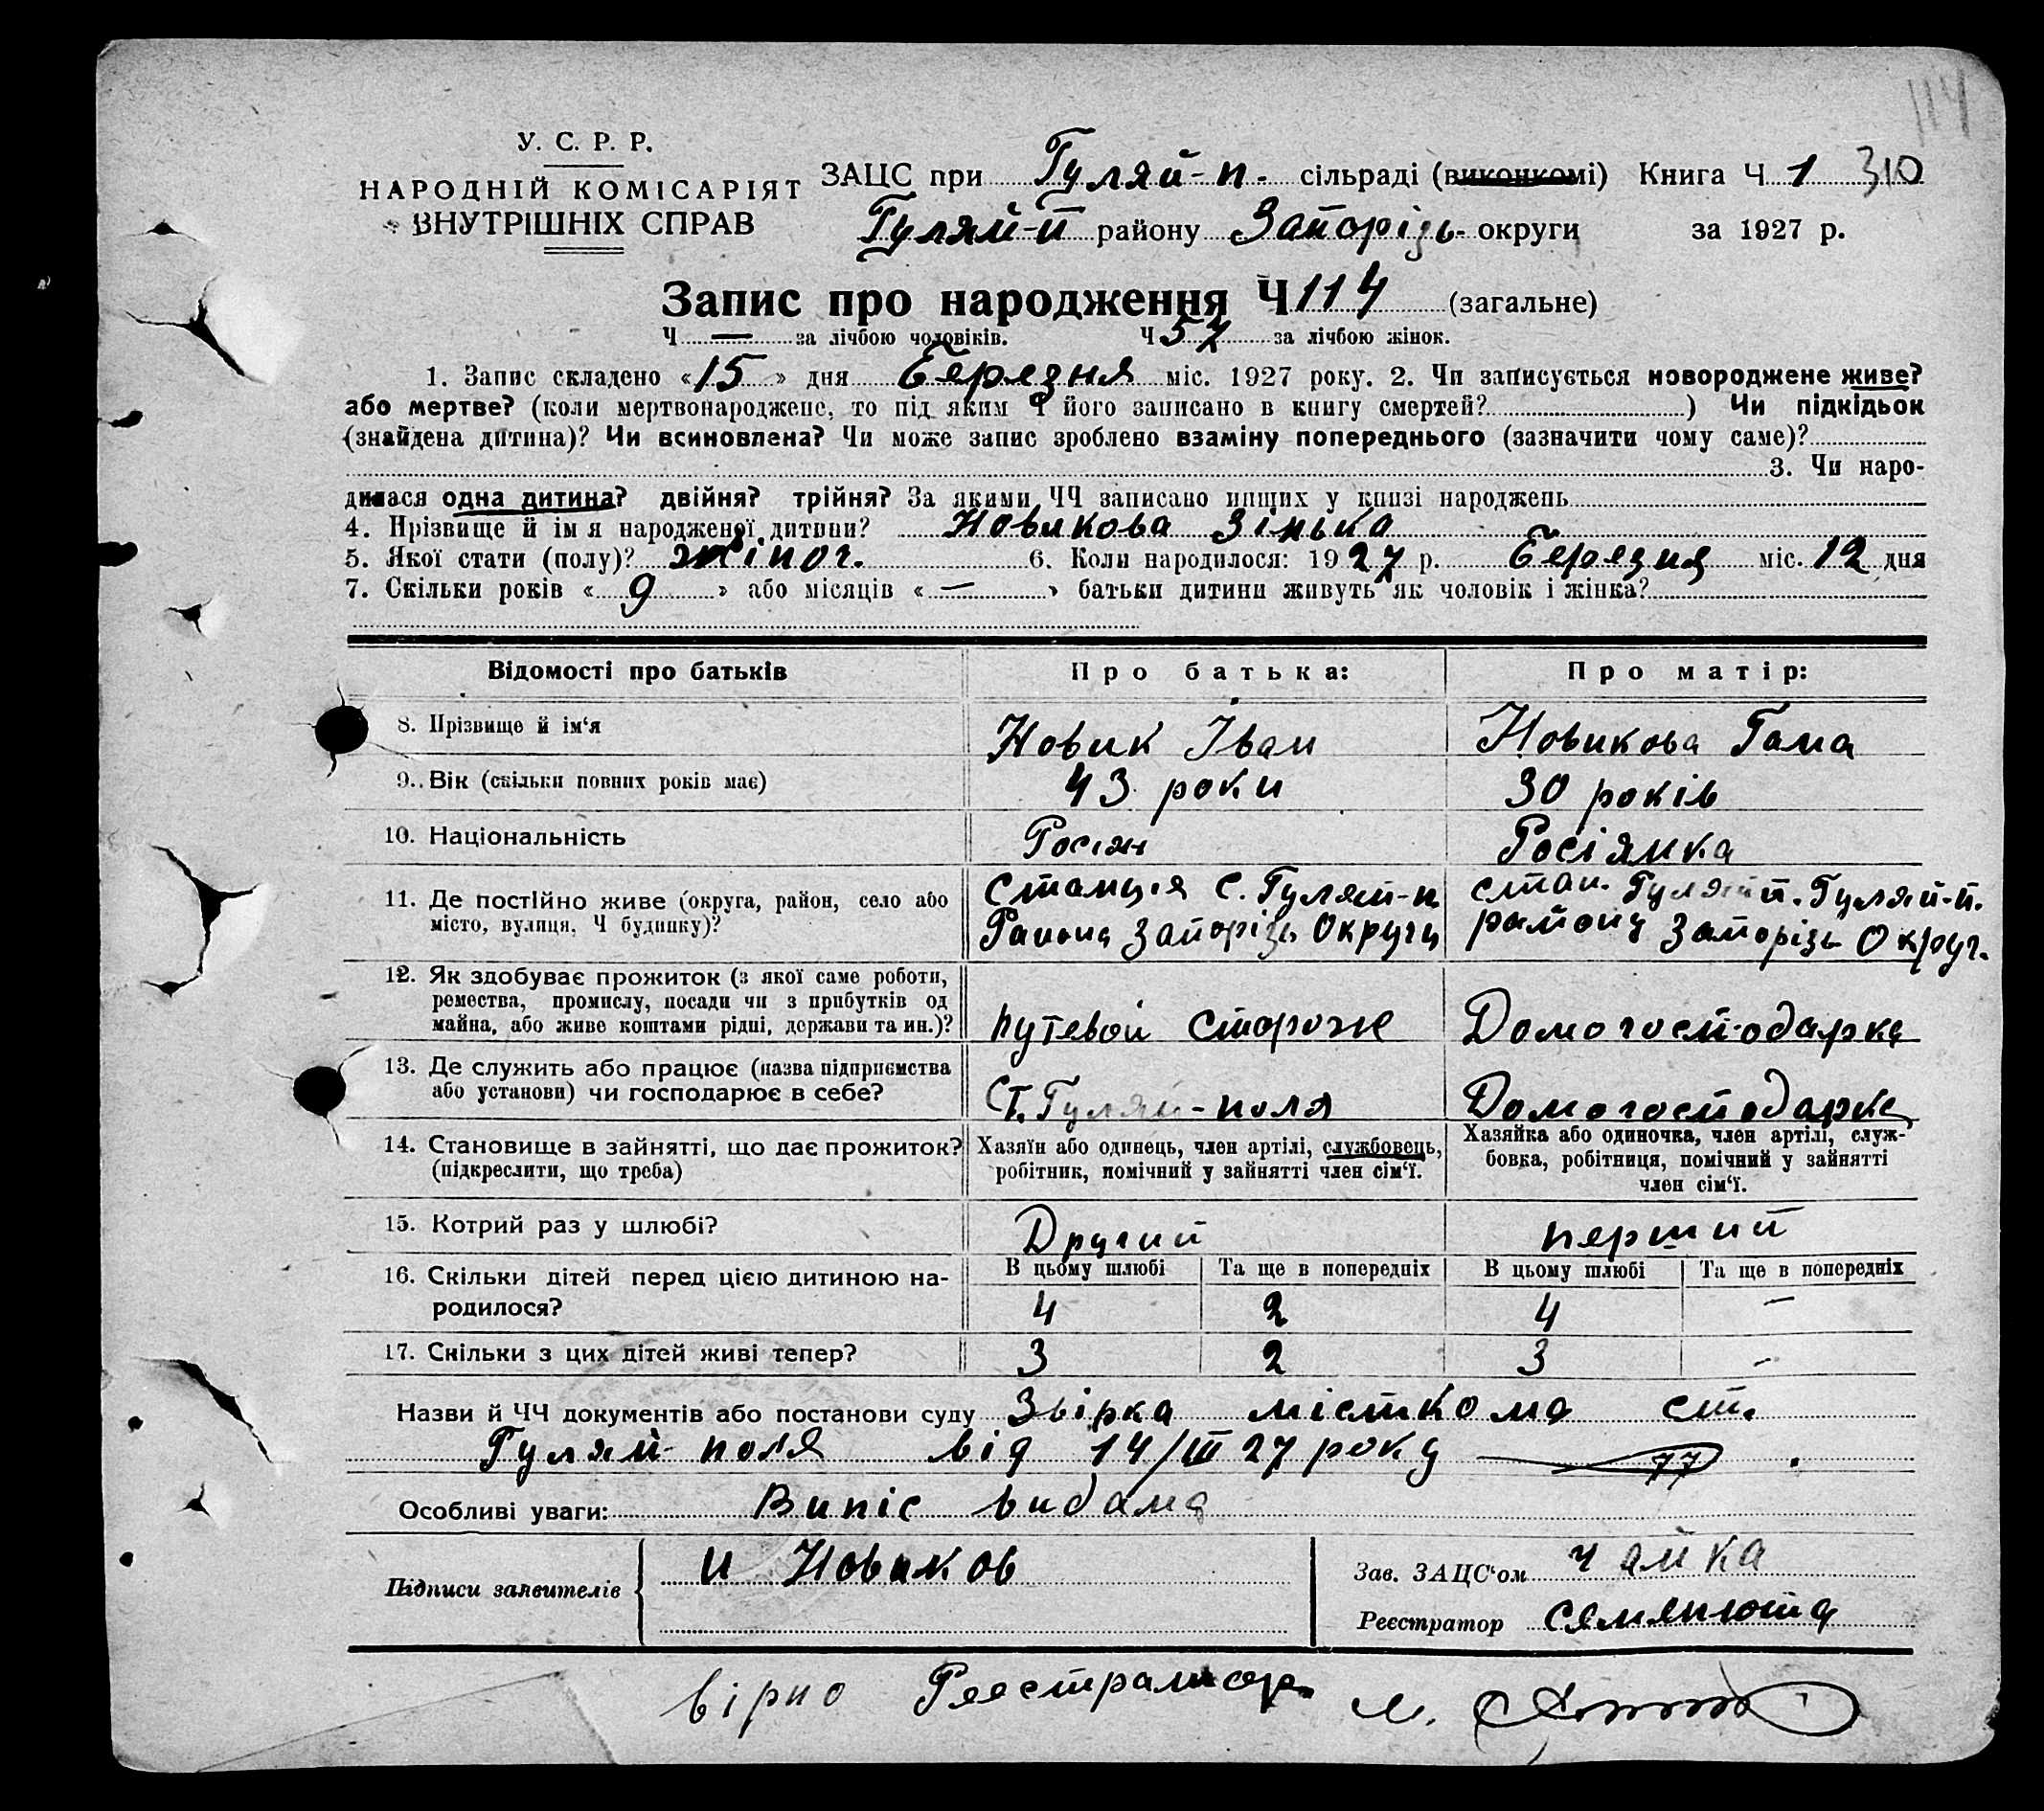 114
У. С. Р. Р.
НАРОДНІЙ КОМІСАРІЯТ
ВНУТРІШНІХ СПРАВ
ЗАЦС при Гуляй-п. сільраді (виконкомі) Книга Ч 1 310
Гуляй-п району Запорізь. округи за 1927 р.
Запис про народження Ч 114 (загальне)
Ч — за лічбою чоловіків. Ч 57 за лічбою жінок.
1. Запис складено «15» дня Березня міс. 1927 року. 2. Чи записується новороджене живе?
або мертве? (коли мертвонароджене, то під яким Ч його записано в книгу смертей? ) Чи підкідьок
(знайдена дитина)? Чи всиновлена? Чи може запис зроблено взаміну попереднього (зазначити чому саме)?
3. Чи наро-
дилася одна дитина? двійня? трійня? За якими ЧЧ записано инших у книзі народжень
4. Прізвище й ім'я народженої дитини? Новикова Зінька
5. Якої стати (полу)? жіноч. 6. Коли народилося: 1927 р. Березня міс. 12 дня
7. Скільки років «9» або місяців «—» батьки дитини живуть як чоловік і жінка?
Відомості про батьків Про батька: Про матір:
8. Прізвище й ім'я Новик Іван Новикова Гана
9. Вік (скільки повних років має) 43 роки 30 років
10. Національність Росіян Росіянка
11. Де постійно живе (округа, район, село або
місто, вулиця, Ч будинку)?
Станция С. Гуляй-п
Района Запорізь Округи
стан. Гуляй п. Гуляй-п.
району Запорізь Округ.
12. Як здобуває прожиток (з якої саме роботи,
ремества, промислу, посади чи з прибутків од
майна, або живе коштами рідні, держави та ин.)?
путевой Стороже Домогосподарка
13. Де служить або працює (назва підприємства
або установи) чи господарює в себе?
Ст. Гуляй-поля Домогосподарка
14. Становище в зайнятті, що дає прожиток?
(підкреслити, що треба)
Хазяїн або одинець, член артілі, службовець,
робітник, помічний у зайнятті член сім'ї.
Хазяйка або одиночка, член артілі, служ-
бовка, робітниця, помічний у зайнятті
член сім'ї.
15. Котрий раз у шлюбі? Другий перший
В цьому шлюбі Та ще в попередніх В цьому шлюбі Та ще в попередніх
16. Скільки дітей перед цією дитиною на-
родилося? 4 2 4 —
17. Скільки з цих дітей живі тепер? 3 2 3 —
Назви й ЧЧ документів або постанови суду Звірка місткома ст.
Гуляй-поля від 14/III 27 року 77
Особливі уваги: Випіс видана
Підписи заявителів и Новиков
Зав. ЗАЦС'ом Чайка
Реєстратор Семенюта
вірно Реєстратор М.